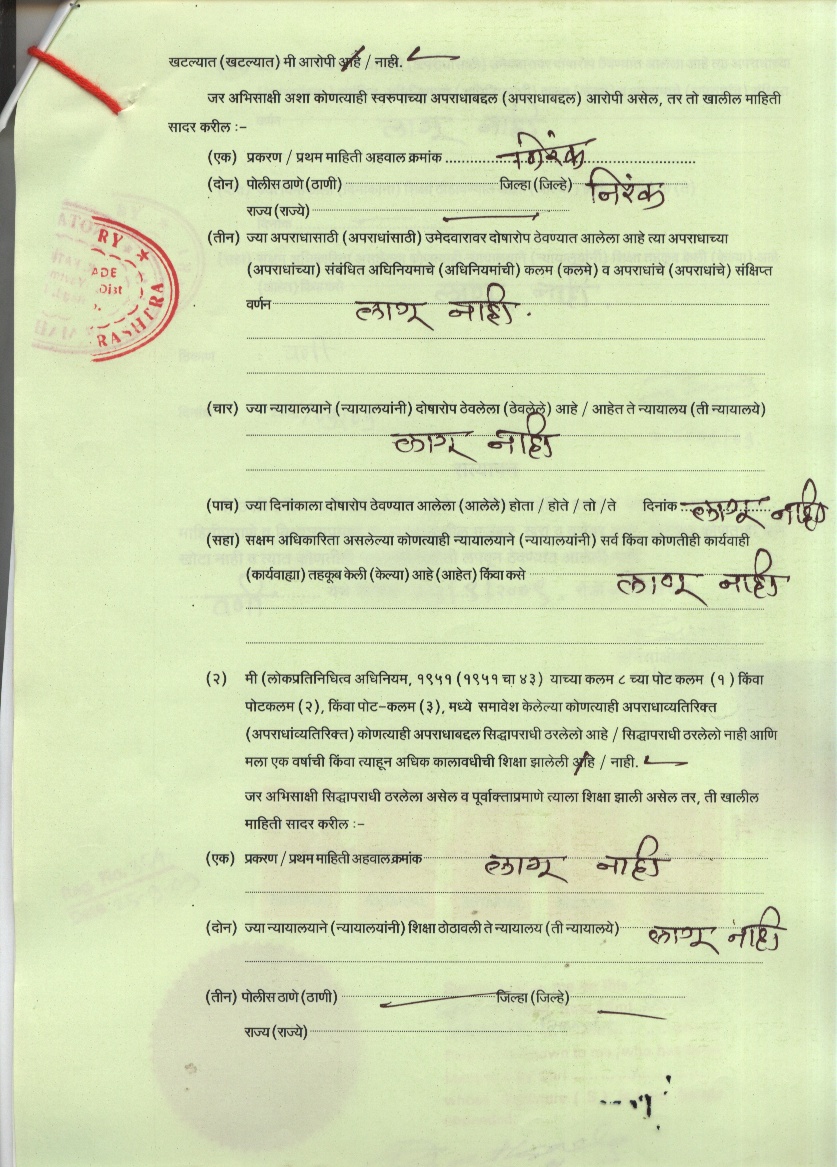 खटल्यात (खटल्यात) मी आरोपी आहे / नाही.
जर अभिसाक्षी अशा कोणत्याही स्वरुपाच्या अपराधाबद्दल (अपराधाबद्दल) आरोपी असेल, तर तो खालील माहिती
सादर करील :-
(एक) प्रकरण / प्रथम माहिती अहवाल क्रमांक निरंक
(दोन) पोलीस ठाणे (ठाणी) जिल्हा (जिल्हे) निरंक
राज्य (राज्ये)
(तीन) ज्या अपराधासाठी (अपराधांसाठी) उमेदवारावर दोषारोप ठेवण्यात आलेला आहे त्या अपराधाच्या
(अपराधांच्या) संबंधित अधिनियमाचे (अधिनियमांची) कलम (कलमे) व अपराधांचे (अपराधांचे) संक्षिप्त
वर्णन लागू नाही.
(चार) ज्या न्यायालयाने (न्यायालयांनी) दोषारोप ठेवलेला (ठेवलेले) आहे / आहेत ते न्यायालय (ती न्यायालये)
लागू नाही
(पाच) ज्या दिनांकाला दोषारोप ठेवण्यात आलेला (आलेले) होता / होते / तो /ते दिनांक लागू नाही
(सहा) सक्षम अधिकारिता असलेल्या कोणत्याही न्यायालयाने (न्यायालयांनी) सर्व किंवा कोणतीही कार्यवाही
(कार्यवाह्या) तहकूब केली (केल्या) आहे (आहेत) किंवा कसे लागू नाही
(२) मी (लोकप्रतिनिधित्व अधिनियम, १९५१ (१९५१ चा ४३) याच्या कलम ८ च्या पोट कलम (१) किंवा
पोटकलम (२), किंवा पोट-कलम (३), मध्ये समावेश केलेल्या कोणत्याही अपराधाव्यतिरिक्त
(अपराधांव्यतिरिक्त) कोणत्याही अपराधाबद्दल सिद्धापराधी ठरलेलो आहे / सिद्धापराधी ठरलेलो नाही आणि
मला एक वर्षाची किंवा त्याहून अधिक कालावधीची शिक्षा झालेली आहे / नाही.
जर अभिसाक्षी सिद्धापराधी ठरलेला असेल व पूर्वोक्ताप्रमाणे त्याला शिक्षा झाली असेल तर, ती खालील
माहिती सादर करील :-
(एक) प्रकरण / प्रथम माहिती अहवाल क्रमांक लागू नाही
(दोन) ज्या न्यायालयाने (न्यायालयांनी) शिक्षा ठोठावली ते न्यायालय (ती न्यायालये) लागू नाही
(तीन) पोलीस ठाणे (ठाणी) जिल्हा (जिल्हे)
राज्य (राज्ये)